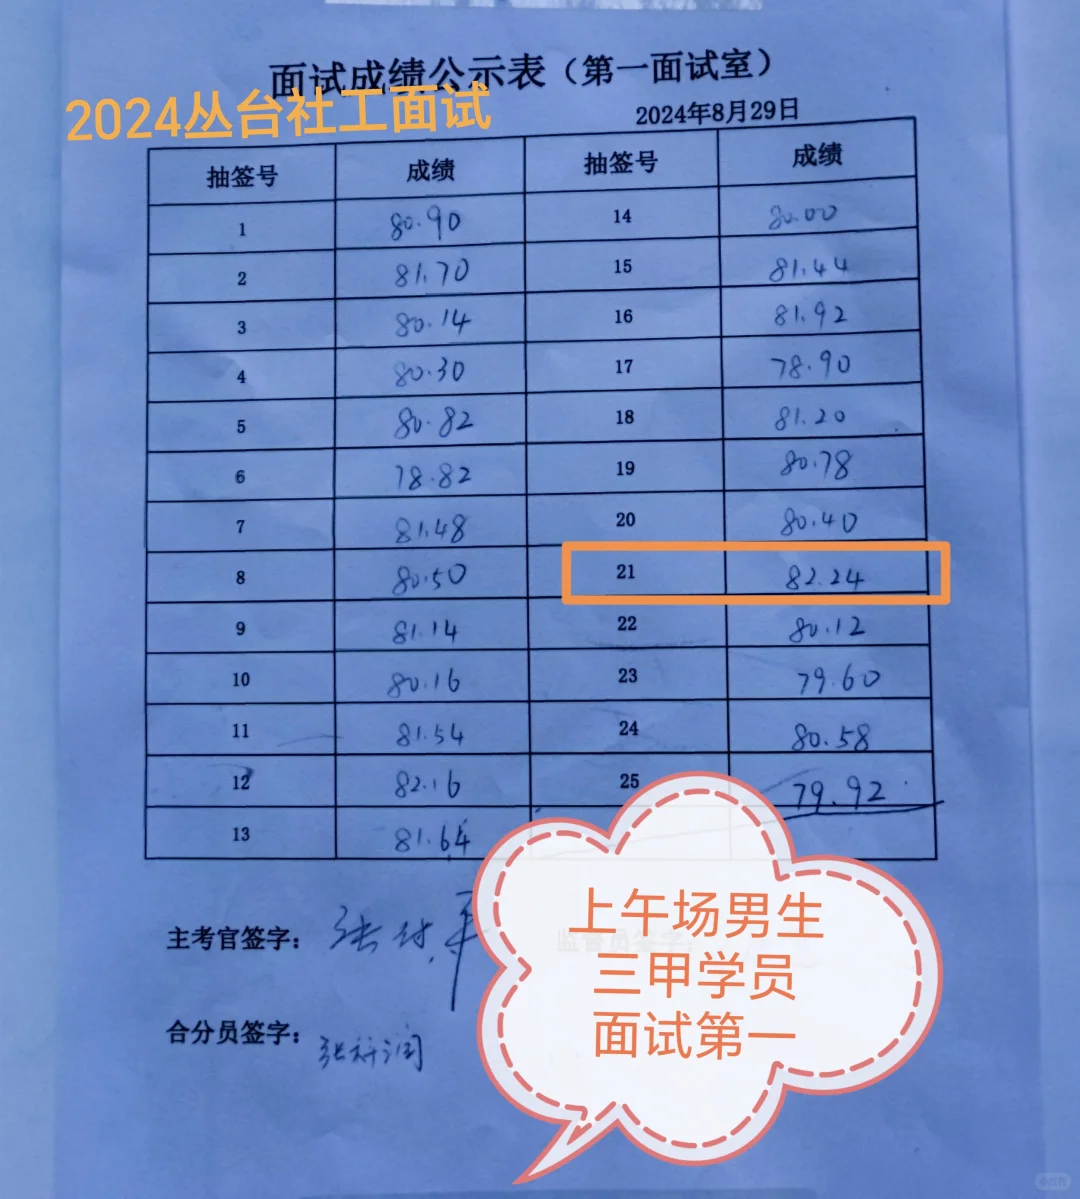 面试成绩公示表（第一面试室）
2024丛台社工面试
2024年8月29日
抽签号 成绩 抽签号 成绩
1 80.90 14 80.00
2 81.70 15 81.44
3 80.14 16 81.92
4 80.30 17 78.90
5 80.82 18 81.20
6 78.82 19 80.78
7 81.48 20 80.40
8 80.50 21 82.24
9 81.14 22 80.12
10 80.16 23 79.60
11 81.54 24 80.58
12 82.16 25 79.92
13 81.64
主考官签字：
监督员签字：
合分员签字：
上午场男生
三甲学员
面试第一
小红书